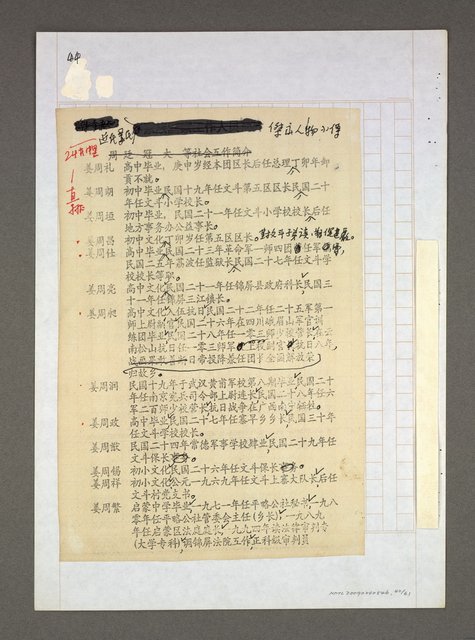 44
傑出人物小傳
24楷
周廷冠太 等社会工作簡介
直排
姜周礼 高中毕业，庚中岁经本团区长后任总理丁卯年邮
貢不就。
姜周朗 初中毕业民国十九年任文斗第五区区长民国二十
年任文斗小学校长。
姜周垣 初中毕业，民国二十一年任文斗小学校校长后任
地方事务办公益事长。
姜周昌 初中文化丁卯岁任第五区区长。
姜周仕 高中毕业民国二十三年革命军一师四团任军
民国二五年荔波任监狱长民国二十七年任文斗学
校校长等职。
姜周亮 高中文化民国二十一年任锦屏县政府科长民国三
十一年任锦屏三江镇长。
姜周昶 高中文化入伍抗日民国二十二年任二五军第一
师上尉排官民国二十六年在四川峨眉山军官训
练团毕业民国二十八年任一零三师营长在云
南松山抗日任一零三师军上校副官抗日八年，
日帝投降兼任团长全国解放荣
归故乡。
姜周润 民国十九年于武汉黄甫军校第八期毕业民国二十
年任南京宪兵司令部上尉连长民国二十八年任六
军二百师少校营长抗日战争在广西南宁牺牲。
姜周政 高中毕业民国二十八年任寨早乡乡长民国三十年
任文斗学校校长。
姜周猷 民国二十四年常德军事学校肄业民国二十九年任
文斗保长
姜周锡 初小文化民国二十六年任文斗保长
姜周祥 初小文化公元一九六九年任文斗上寨大队长后任
文斗村党支书。
姜周繁 启蒙中学毕业一九七一年任平略公社秘书一九八
零年任平略公社管委会主任(乡长)一九八九
年任启蒙区法庭庭长一九九四年读法律审判专
(大学专科)调锦屏法院工作正科级审判员
NMTL20090280546, 44/61